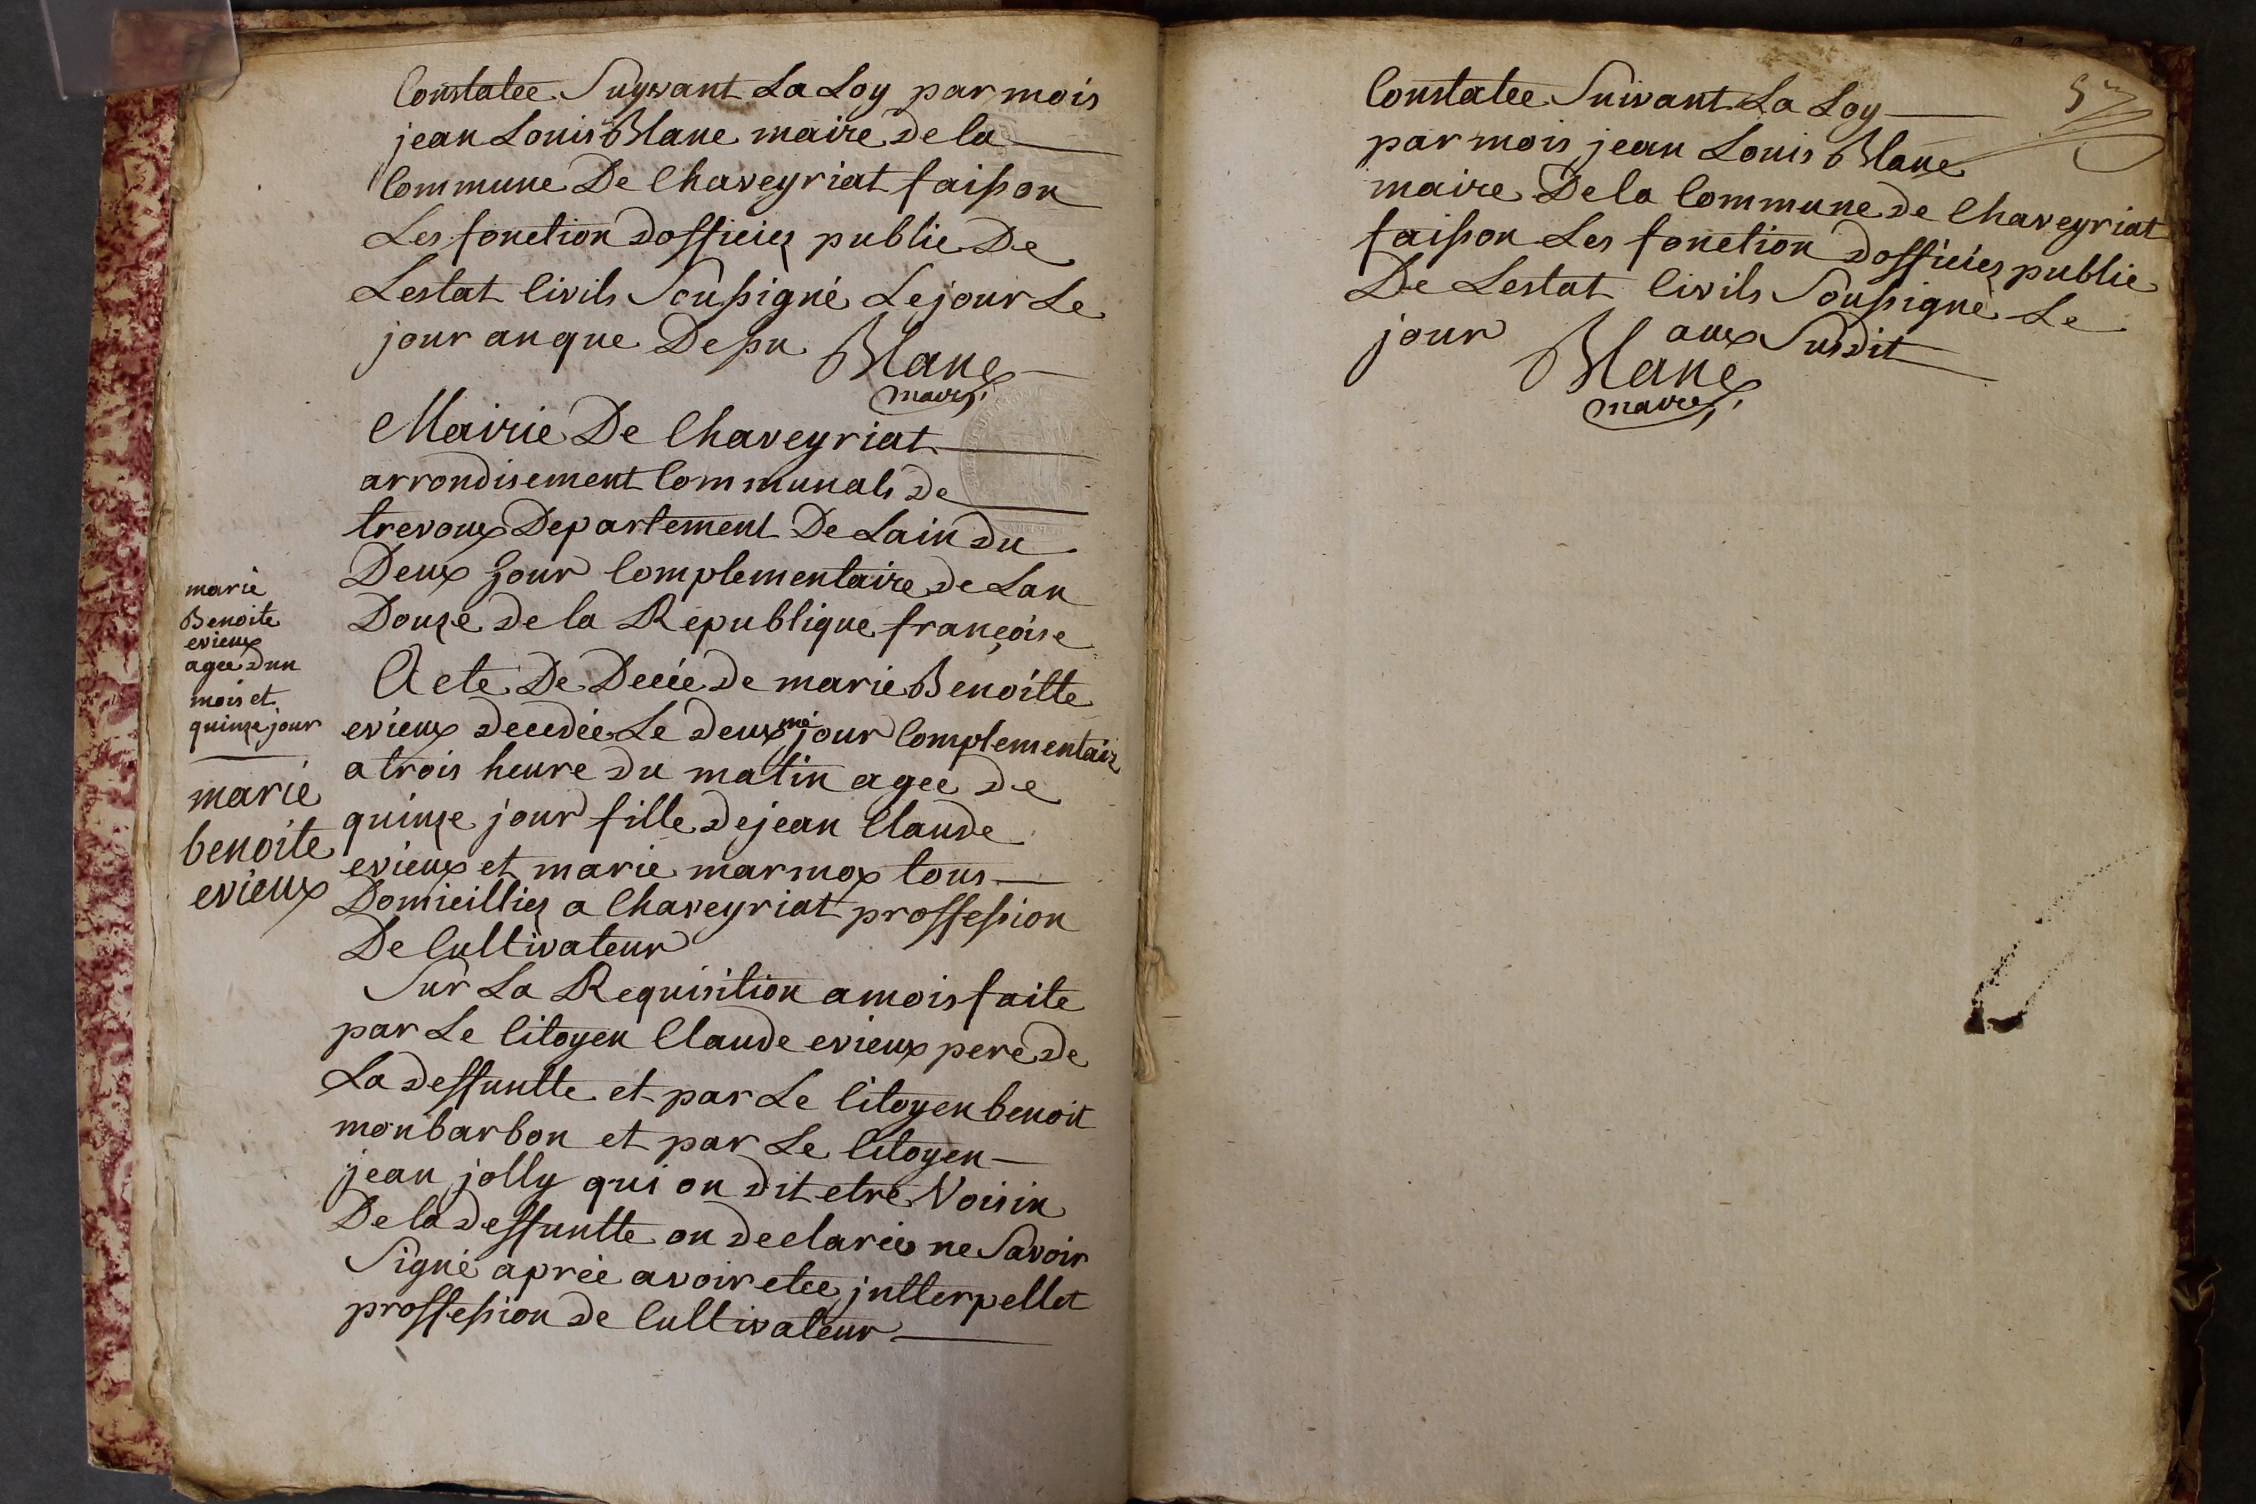 Constatee Suyvant La Loy par mois
jean Louis Blanc maire de la
Commune De Chaveyriat faisson
Les fonction dofficiez public De
Lestat Civils Soussigné Le jour Le
jour anque Depu Blanc
maire
Mairie De Chaveyriat
arrondisement Communals de
trevoux Departement De Lain du
Deux Jour Complementaire de Lan
Douze de la Republique françoise
Acte De Decée de marie Benoitte
evieux decedée Le deuxme jour Complementaiz
a trois heure du matin agee de
quinze jour fille de jean Claude
evieux et marie marmox tous
Domicilliez a Chaveyriat proffession
De Cultivateur
Sur La Requisition a mois faite
par Le Citoyen Claude evieux pere de
La deffuntte et par Le Citoyen benoit
monbarbon et par Le Citoyen
jean jolly qui on dit etre Voisin
De la deffuntte on declarée ne Savoir
Signé aprée avoir etee jntterpellet
proffession de Cultivateur
marie
Benoite
evieux
agee dun
mois et
quinze jour
marie
benoite
evieux
Constatee Suivant La Loy
par mois jean Louis Blanc
maire De la Commune de Chaveyriat
faisson Les fonction dofficiez public
De Lestat Civils Soussigné Le
jour aux Susdit
Blanc
maire